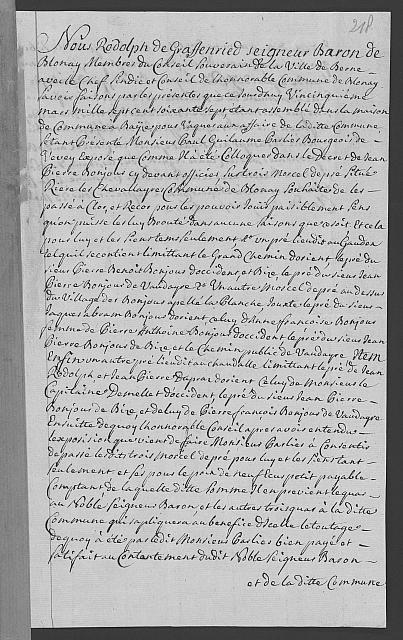 218
Nous Rodolph de Graffenried Seigneur Baron de
Blonay Membres du Conseil Souverain de la Ville de Berne
avec le Chef Sindic et Conseil de l'honnorable Commune de Blonay
savoir faisons par les presentes que ce Jourdhuy Vincinquieme
mars mille sept cent soixante sept etant assemblé dans la maison
de Commune a Baÿe pour Vaguer aux affaire de la ditte Commune
etant Presenté Monsieur Paul Guilaume Parlier Bourgeois de
Vevey Exposé que Comme Il a eté Colloquer dans le Decret de Jean
Pierre Bonjour cy devant officier sur trois Morcel de pré situé
Riere les Chevallaÿre Commune de Blonay Souhaiter de les
passé a Clos et Record pour les pouvoir Jouir paisiblement sans
qu'on puisse les luy Brouté dans aucune saisons que ce soit et cela
pour luy et les siens tems seulement 1° un pré lieu dit au Gaudon
tel qu'il se contient limittant le Grand Chemin dorient le pré du
sieur Pierre Benoit Bonjour d'occident et Bize le pré du sieur Jean
Pierre Bonjour de Vaudayre 2° Un autre Morcel de pré au dessus
du Village des Bonjour apellé la Planche Jouxte le pré du sieur
Jaques abram Bonjour dorient celuy d'Anne francoise Bonjour
femme de Pierre Anthoine Bonjour d'occident le pré du sieur Jean
Pierre Bonjour de Bize et le Chemin public de Vaudayre Item
Enfin un autre pré lieu dit limittant le pré de Jean
Rodolph et Jean Pierre Dupraz dorient Celuy de Monsieur le
Capitaine d'occident, le pré du sieur Jean Pierre
Bonjour de Bize, et de luy de Pierre francois Bonjour de Vaudayre
Ensuitte de quoy l'honnorable Conseil apres avoir entendu
l'exposition que vient de faire Monsieur Parlier a Consentis
de passé les dits trois Morcel de pré pour luy et les siens tant
seulement et ce pour le prix de neuf Ecus petit payable
Comptant de laquelle ditte somme Il en previent le quar
au Noble Seigneur Baron et les autres trois quar a la ditte
Commune qui s'apliquera au benefice d'Icelle le tout
dequoy a été par le dit Monsieur Parlier bien payé et
satisfait au Contentement du dit Noble Seigneur Baron
et de la ditte Commune